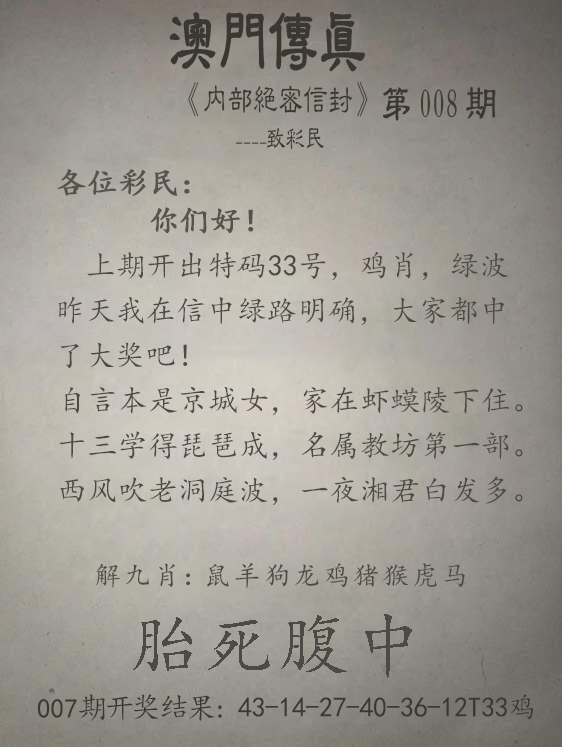 澳門傳眞
《内部絕密信封》第008期
----致彩民
各位彩民：
你们好！
上期开出特码33号，鸡肖，绿波
昨天我在信中绿路明确，大家都中
了大奖吧！
自言本是京城女，家在虾蟆陵下住。
十三学得琵琶成，名属教坊第一部。
西风吹老洞庭波，一夜湘君白发多。
解九肖：鼠羊狗龙鸡猪猴虎马
胎死腹中
007期开奖结果：43-14-27-40-36-12T33鸡